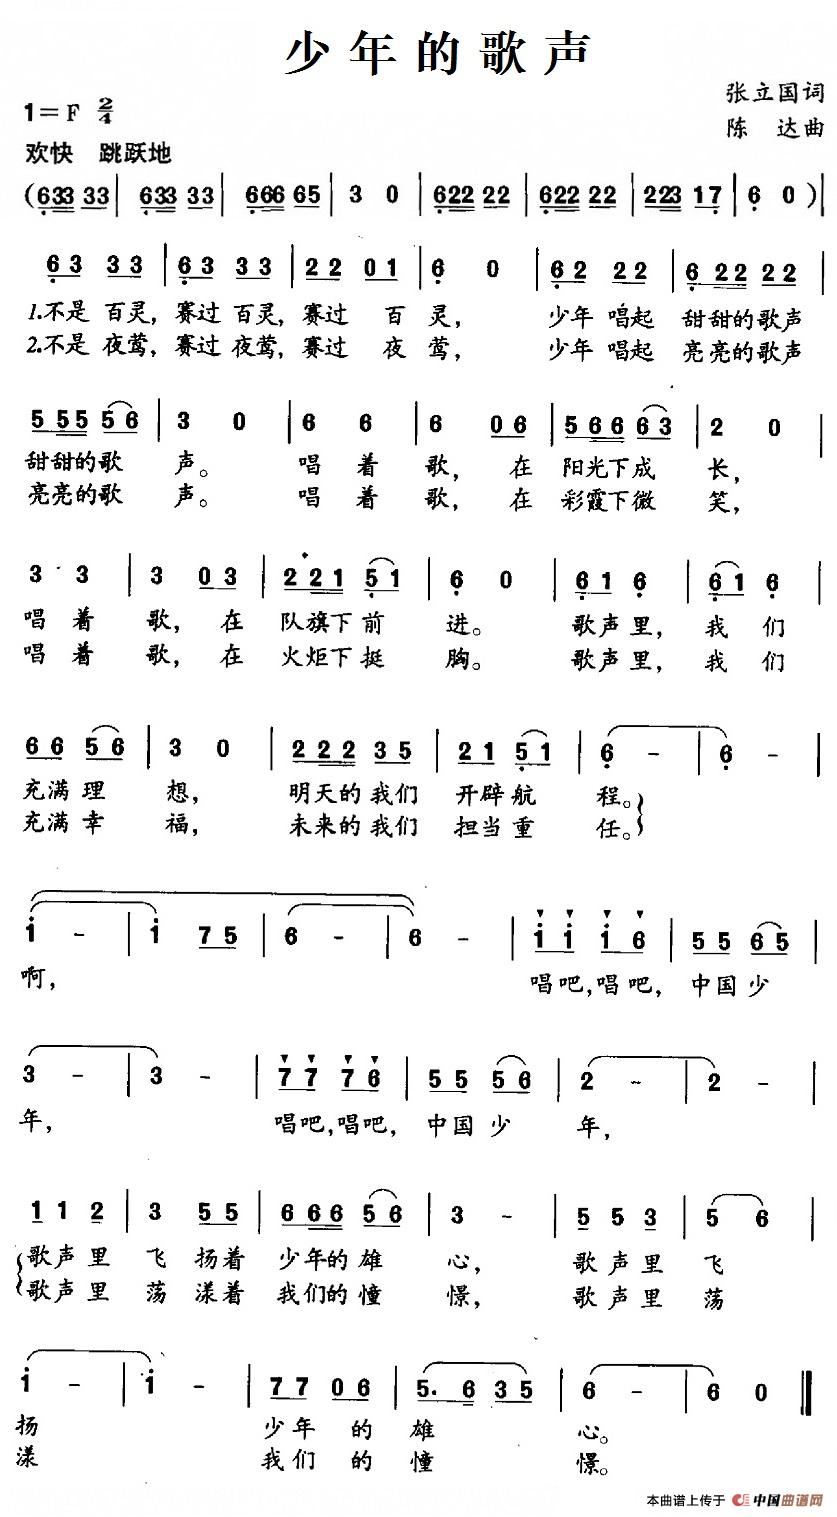 少年的歌声
1=F 2/4
张立国词
陈 达曲
欢快 跳跃地
(633 33 | 633 33 | 666 65 | 3 0 | 622 22 | 622 22 | 223 17 | 6 0 )|
63 33 | 63 33 | 22 01 | 6 0 | 62 22 | 6 222 22 |
1.不是 百灵, 赛过 百灵, 赛过 百 灵, 少年 唱起 甜甜的歌声
2.不是 夜莺, 赛过 夜莺, 赛过 夜 莺, 少年 唱起 亮亮的歌声
5 55 56 | 3 0 | 6 6 | 6 06 | 566 63 | 2 0 |
甜甜的歌 声。 唱 着 歌, 在 阳光下成 长,
亮亮的歌 声。 唱 着 歌, 在 彩霞下微 笑,
3 3 | 3 03 | 2 21 51 | 6 0 | 61 6 | 61 6 |
唱 着 歌, 在 队旗下 前 进。 歌声 里, 我 们
唱 着 歌, 在 火炬下 挺 胸。 歌声 里, 我 们
66 56 | 3 0 | 2 22 35 | 21 51 | 6 - | 6 - |
充满 理 想, 明天的 我们 开辟 航 程。
充满 幸 福, 未来的 我们 担当 重 任。
1 - | 1 75 | 6 - | 6 - | 11 16 | 55 65 |
啊, 唱吧,唱吧, 中国 少
3 - | 3 - | 77 76 | 55 56 | 2 - | 2 - |
年, 唱吧,唱吧, 中国 少 年,
1 1 2 | 3 55 | 666 56 | 3 - | 5 5 3 | 5 6 |
歌声 里 飞 扬着 少年的 雄 心, 歌声 里 飞
歌声 里 荡 漾着 我们的 憧 憬, 歌声 里 荡
1 - | 1 - | 77 06 | 5. 6 35 | 6 - | 6 0 ‖
扬 少年 的 雄 心。
漾 我们 的 憧 憬。
本曲谱上传于 中国曲谱网